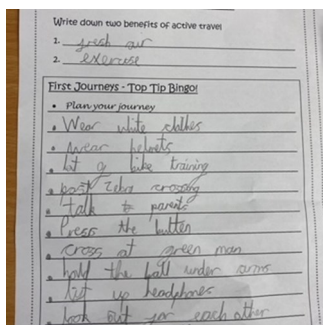 Write down two benefits of active travel
1. fresh air
2. exercise
First Journeys - Top Tip Bingo!
• Plan your journey
• Wear white clothes
• wear helmets
• bike training
• zebra crossing
• talk to parents
• Press the button
• cross at green man
• hold the ball under arms
• up headphones
look out for each other